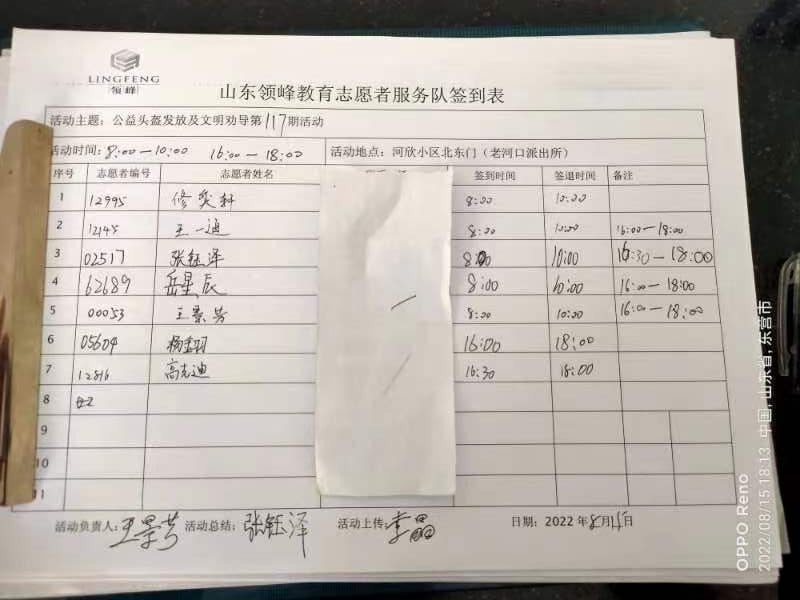 LINGFENG
领峰
山东领峰教育志愿者服务队签到表
活动主题：公益头盔发放及文明劝导第117期活动
活动时间：8:00—10:00 16:00—18:00 活动地点：河欣小区北东门（老河口派出所）
序号 志愿者编号 志愿者姓名 签到时间 签退时间 备注
1 12995 修奕科 8:00 10:00
2 12145 王一迪 8:00 10:00 16:00—18:00
3 02517 张钰泽 8:00 10:00 16:30—18:00
4 62689 岳星辰 8:00 10:00 16:00—18:00
5 00053 王景芳 8:00 10:00 16:00—18:00
6 05604 杨 羽 16:00 18:00
7 12816 高克迪 16:30 18:00
8
9
10
11
活动负责人：王景芳 活动总结：张钰泽 活动上传：李晶 日期：2022年8月15日
OPPO Reno
2022/08/15 18:13 中国, 山东省, 东营市